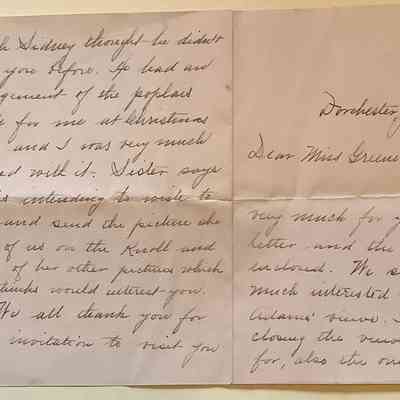 h Sidney thought he didn't
you before. He had an
gement of the poplars
e for me at Christmas
and I was very much
ed with it. Sister says
is intending to write to
and send the picture she
of us on the Knoll and
of her other pictures which
thinks would interest you.
We all thank you for
invitation to visit you
Dorchester,
Dear Miss Greene
very much for y
letter and the
inclosed. We s
much interested
Adams' views.
closing the view
for, also the one